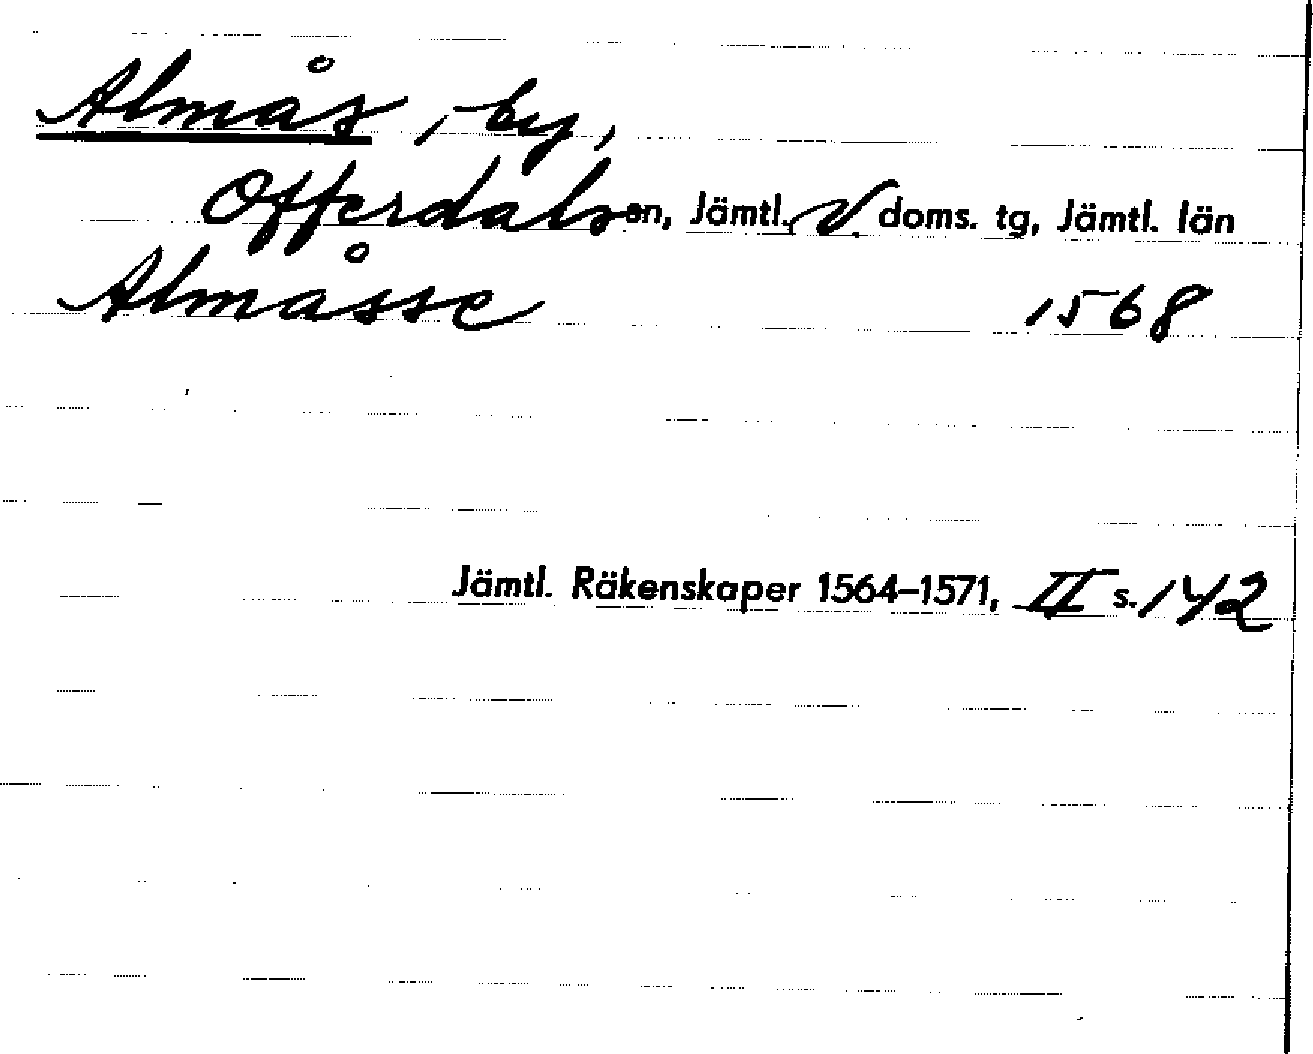 Almås, by,
Offerdals sn, Jämtl. V. doms. tg, Jämtl. län
Almåsse 1568
Jämtl. Räkenskaper 1564–1571, II s. 142